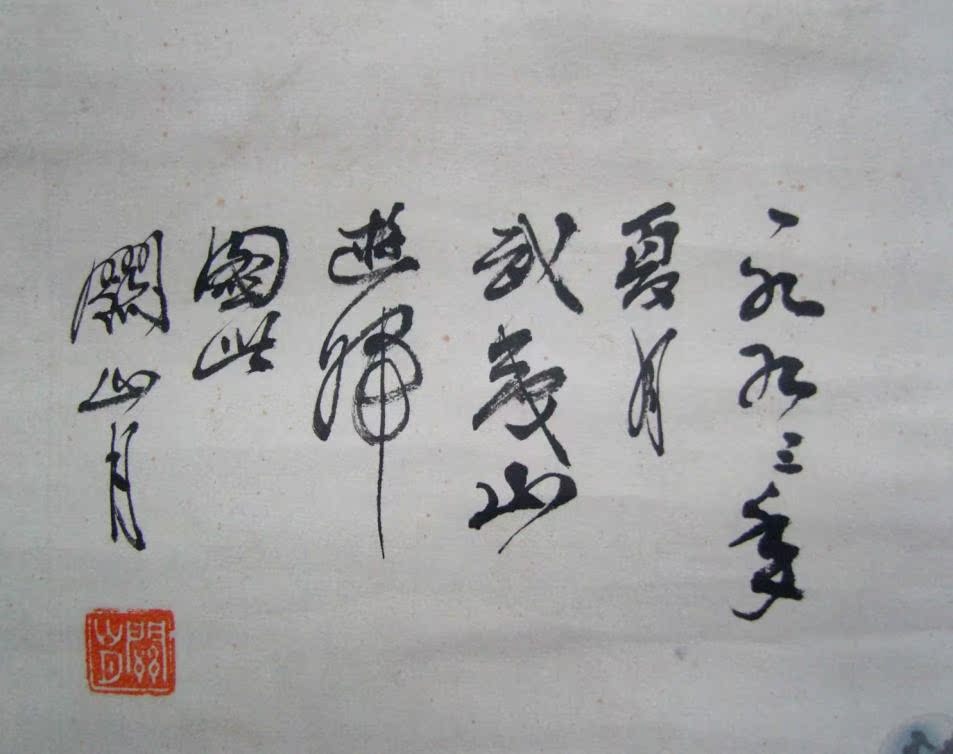 一九九三年
夏月
武夷山
遊歸
圖此
關山月
關山月